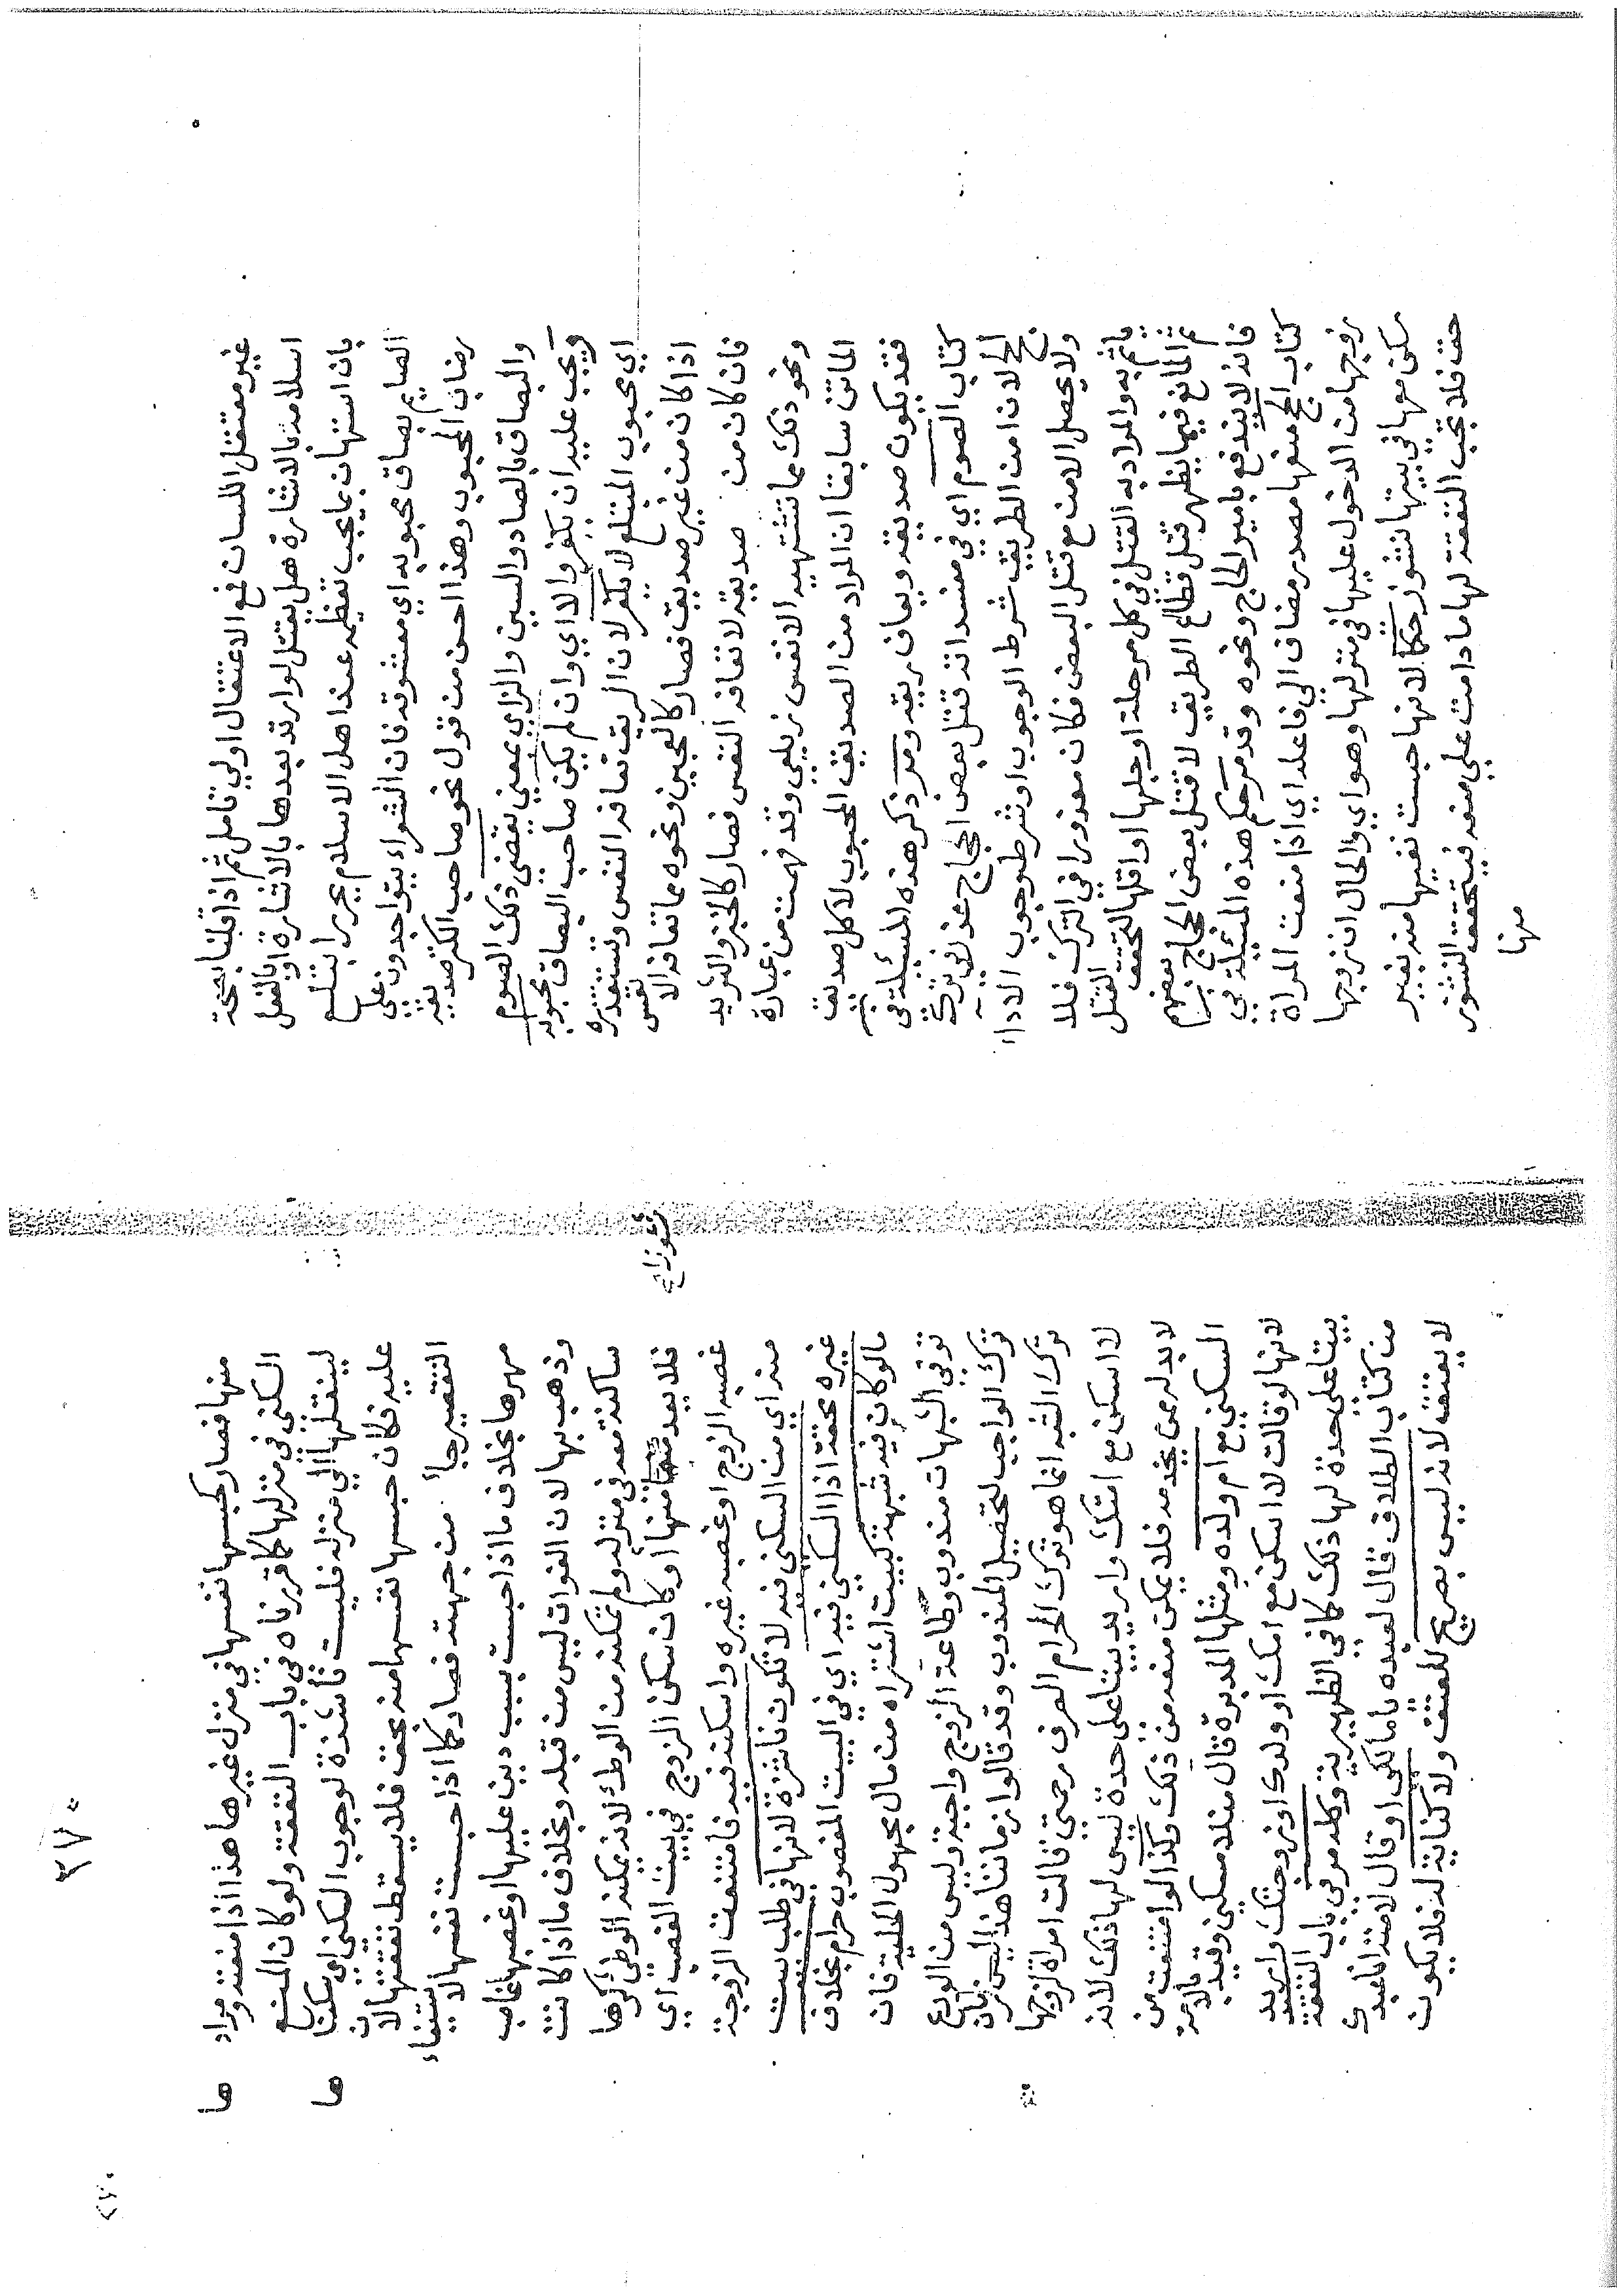 غير معتقل اللسان فمع الاعتقال اولي تامل ثم اذا قلنا بصحة
اسلامه بالاشارة هل يقتل لو ارتد بعدها بالاشارة او بالفعل
بان استهان بما يجب تعظيمه عند اهل الاسلام يحرر ابتلع
الصايم بصاق محبوبه اي معشوقه فان الشعراء يتواجدون علي
رضاب المحبوب وهذا احسن من قول نحو صاحب الكنز صديقه
والبصاق بالصاد والسين والزاي بمعني يقضي ذلك الصوم
ويجب عليه ان يكفر والا اي وان لم يكن صاحب البصاق محبوبه
اي محبوب المبتلع لا يكفر لان الريق تعافه النفس وتستقذره
اذا كان من غير صديق فصار كالعجين ونحوه مما تعافه الانفس
فان كان من صديقه لا تعافه النفس فصار كالخبز والثريد
ونحو ذلك مما تشتهيه الانفس زيلعي وقد فهمت من عبارة
الماتن سابقا ان المراد من الصديق المحبوب لا كل صديق
فقد يكون صديقه ويعاف ريقه ومر ذكر هذه المسئلة في
كتاب الصوم اي في مفسداته قتل بعض الحجاج عذر في ترك
الحج لان امن الطريق شرط الوجوب او شرط وجوب الادا
ولا يحصل الامن مع قتل البعض فكان معذورا في الترك فلا
ياثم به والمراد به القتل في كل مرحلة او جلها او اقلها لتحقق القتل
ثم المانع فيما يظهر قتل قطاع الطريق لا قتل بعض الحجاج بعضهم
فانه لا يندفع بامير الحاج ونحوه وقد مر حكم هذه المسئلة في
كتاب الحج منعها مصدر مضاف الي فاعله اي اذا منعت المراة
زوجها من الدخول عليها في منزلها وهو اي والحال ان زوجها
سكن معها في بيتها نشوز حكما لانها حبست نفسها منه بغير
حق فلا تجب النفقة لها ما دامت علي منعه فيتحقق النشوز
منها
٢٧٠
منها فصار كحبسها نفسها في منزل غيرها هذا اذا منعته ومراد ها
السكني في منزلها كما قررناه في باب النفقة ولو كان المنع
لينقلها الي منزله فليست ناشزة لوجوب السكني اي سكنا ها
عليه فكان حبسها نفسها منه بحق فلا يسقط نفقتها لان
التقصير جا من جهته فصار كما اذا حبست نفسها لاستيفاء
مهرها بخلاف ما اذا حبست بسبب دين عليها او غصبها غاصب
وذهب بها لان الفوات ليس من قبله وبخلاف ما اذا كانت
ساكنة معه في منزله ولم تمكنه من الوطئ لانه يمكنه الوطئ كرها
فلا يعد منعا منها او كان سكن الزوج في بيت الغصب اي
غصبه الزوج او غصبه غيره واسكنه فيه فامتنعت الزوجة
منه اي من السكني فيه لا تكون ناشزة لانها في طلب بيت
غيره محقة اذا السكني فيه اي في البيت المغصوب حرام بخلاف
مالو كان فيه شبهة كبيت اشتراه من مال مجهول الحلية فان
توقي الشبهات مندوب وطاعة الزوج واجبة وليس من الورع
ترك الواجب لتحصيل المندوب وقد قالوا زماننا هذا ليس زمان
ترك الشبه انما هو ترك الحرام الصرف رحمتي قالت امراة لزوجها
لا اسكن مع امتك واريد بيتا علي حدة ليس لها ذلك لانه
لا بد له ممن يخدمه فلا يمكن منعه من ذلك وكذا لو امتنعت من
السكني مع ام ولده ومثلها المدبرة قال منلا مسكين وقيد بالامة
لانها لو قالت لا اسكن مع امك او ولدك او زوجتك واريد
بيتا علي حدة لها ذلك كما في الظهيرية وكله مر في باب النفقة
من كتاب الطلاق قال لعبده يا مالكي او قال لامته انا عبدك
لا يعتق لانه ليس بصريح للعتق ولا كناية له فلا يكون